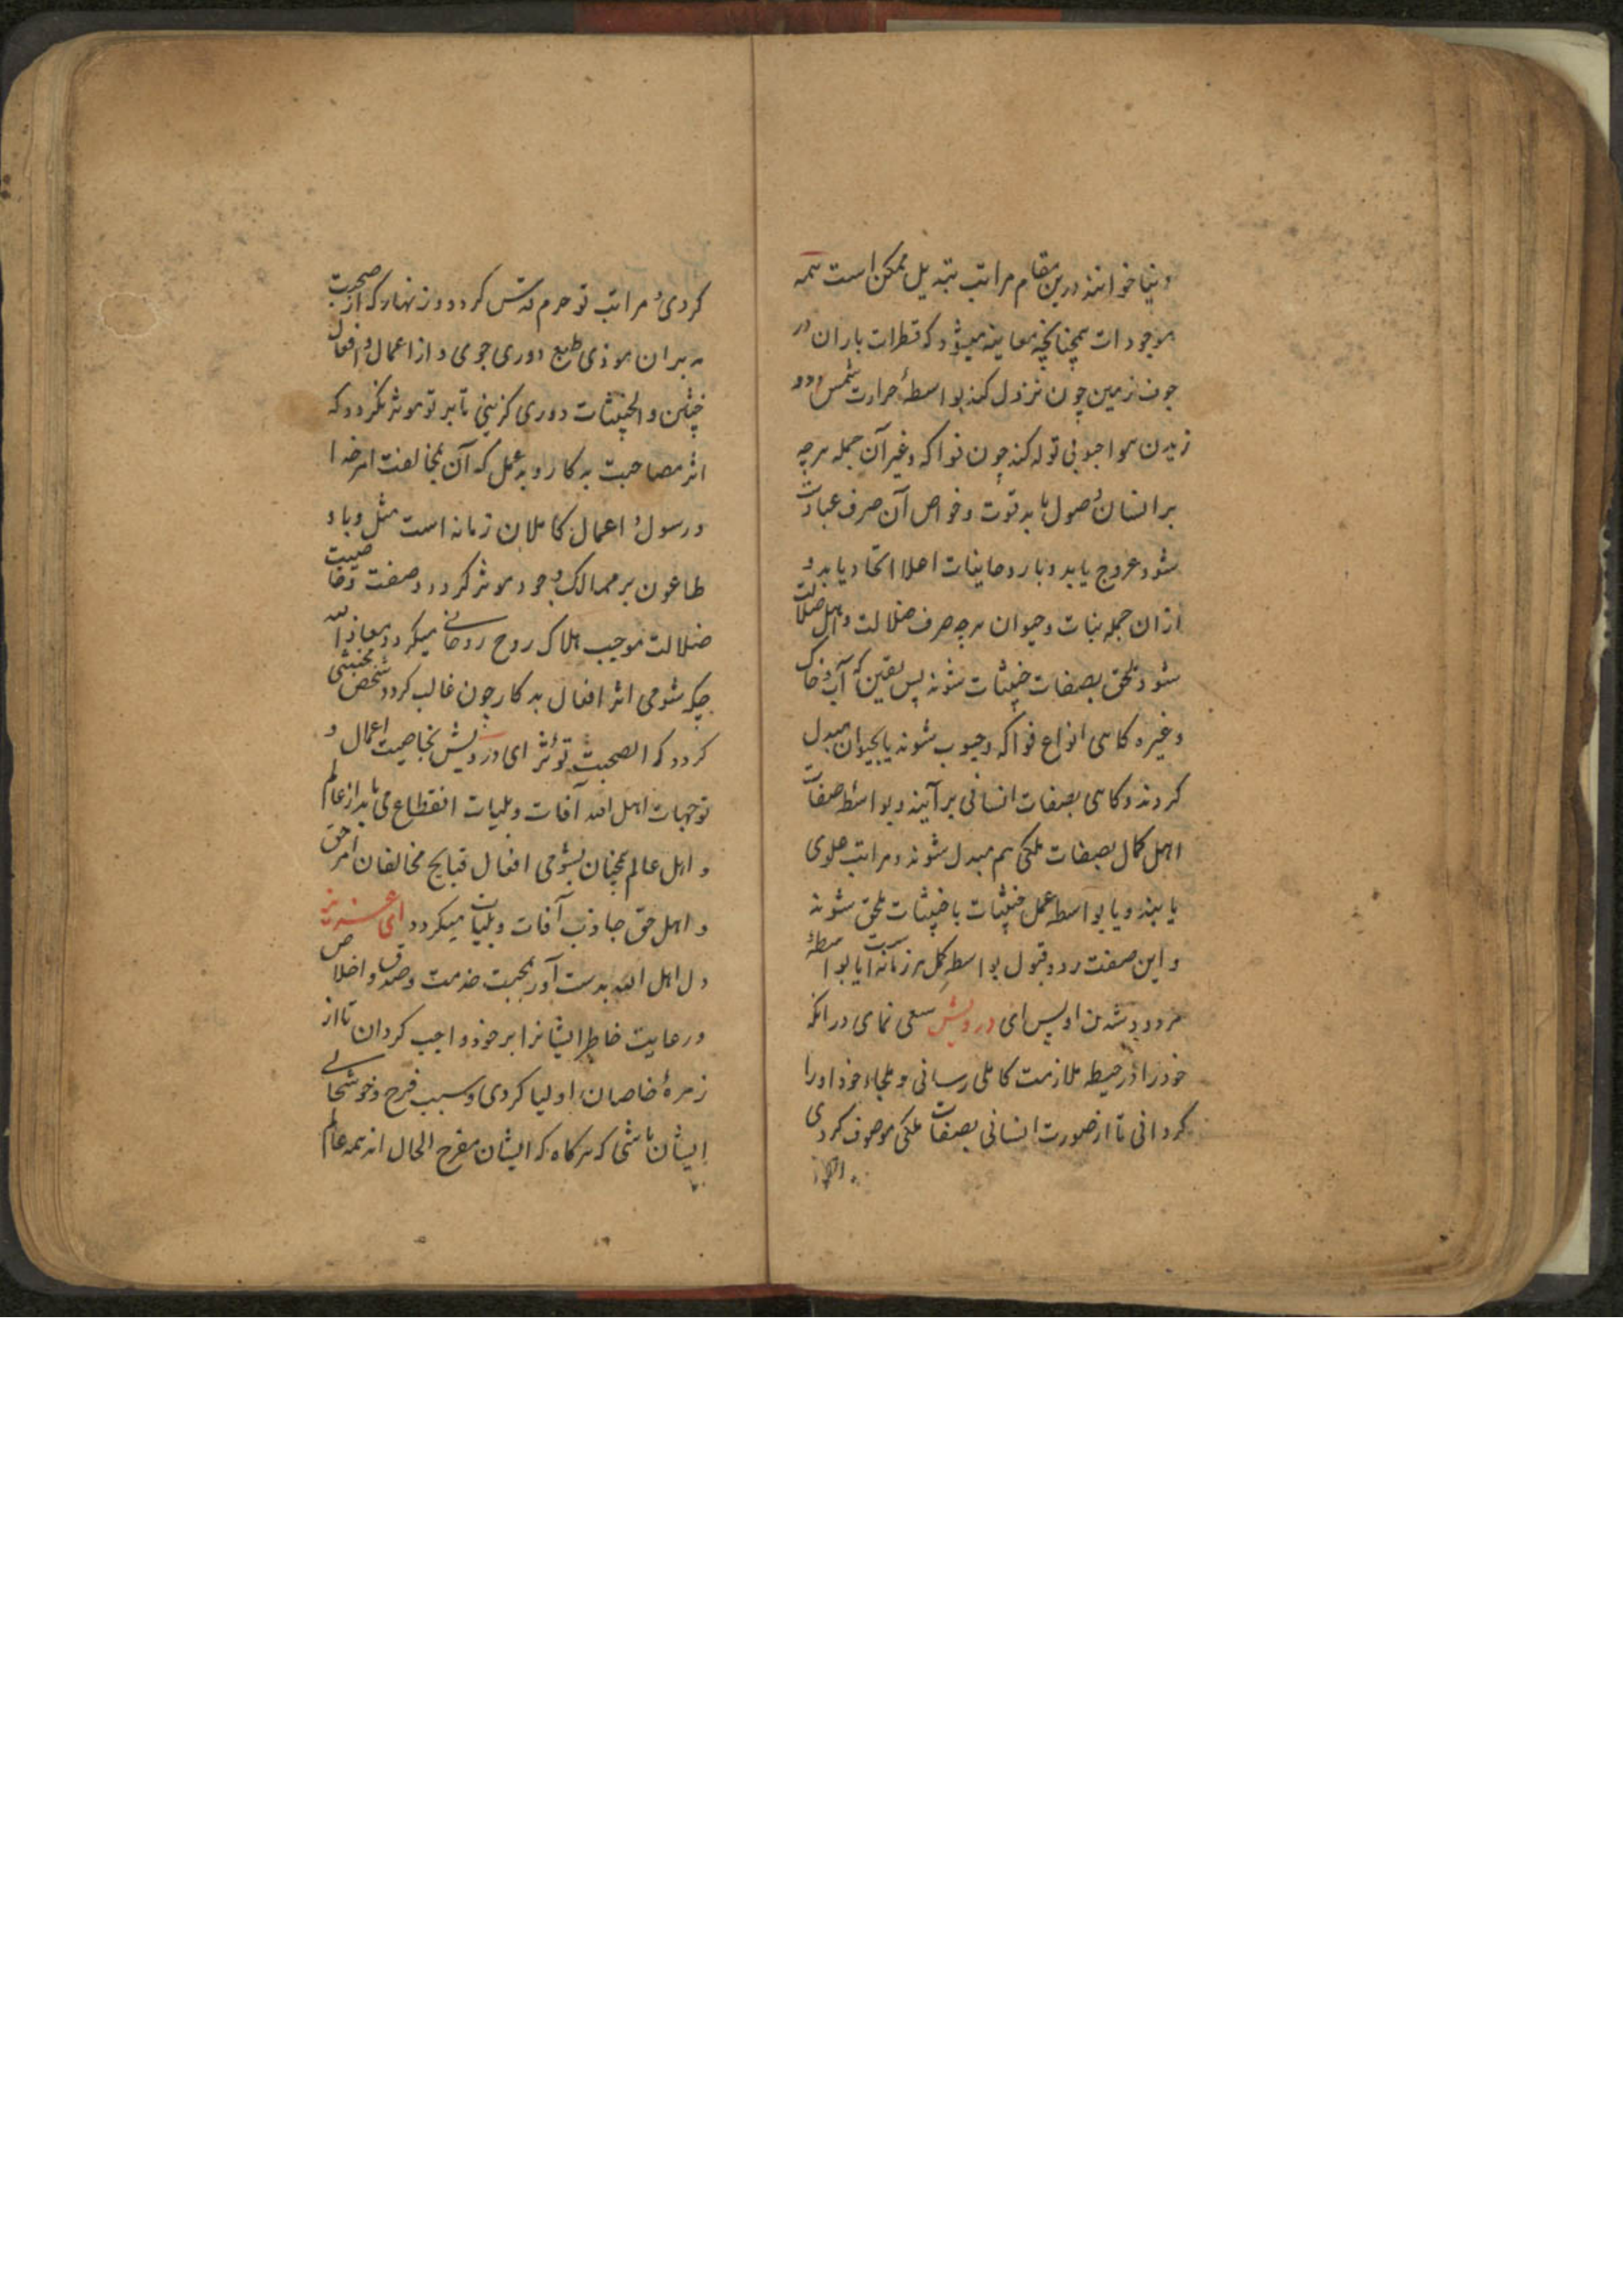 دنیا خوانند درین مقام مراتب تبدیل ممکن است همه
موجودات همچنانچه معاینه میشود که قطرات باران در
جوف زمین چون نزول کند بواسطهٔ حرارت شمس و
زیدن هوا حبوبی تولد کند چون فواکه و غیر آن جمله هرچه
بر انسان وصول یابد قوت و خواص آن صرف عبادت
شود عروج یابد و با روحانیات اعلا اتحاد یابد و
ازان جمله نبات و حیوان هرچه صرف ضلالت و اهل ضلالت
شود ملحق بصفات خبیثات شوند پس یقین که آب و خاک
و غیره کاهی انواع فواکه و حبوب شوند یا بحیوان مبدل
کردند و کاهی بصفات انسانی برآیند و بواسطهٔ صفات
اهل کمال بصفات ملکی هم مبدل شوند و مراتب علوی
یابند و یا بواسطه عمل خبیثات با خبیثات ملحق شوند
و این صفت رد و قبول بواسطه کمل هر زمانه است یا بواسطهٔ
مردود شدن او پس ای درویش سعی نمای در انکه
خود را در حیطه ملازمت کاملی رسانی و ملجاء خود او را
کردانی تا از صورت انسانی بصفات ملکی موصوف کردی
کردی و مراتب تو حرم قدس کردد و زنهار که از صحبت
بدبران موذی طبع دوری جوی و از اعمال و افعال
خبیثین و الخبیثات دوری کزینی تا بر تو موثر نکردد که
اثر مصاحبت بدکار و بدعمل که آن بمخالفت امر خدا
و رسول و اعمال کاملان زمانه است مثل وبا و
طاعون بر ممالک وجود موثر کردد و صفت و خاصیت
ضلالت موجب هلاک روح روحانی میکردد معاذ الله
چکه شومی اثر افعال بدکار چون غالب کردد شخص مخبثی
کردد که الصحبت توثر ای درویش بخاصیت اعمال و
توجهات اهل الله آفات و بلیات انقطاع می یابد از عالم
و اهل عالم همچنان بشومی افعال قبایح مخالفان امر حق
و اهل حق جاذب آفات و بلیات میکردد ای عزیز
دل اهل الله بدست آور بمحبت خدمت و صدق و اخلاص
و رعایت خاطر ایشانرا بر خود واجب کردان تا از
زمرهٔ خاصان اولیا کردی و سبب فرح و خوشحالی
ایشان باشی که هرکاه که ایشان مفرح الحال اند همه عالم